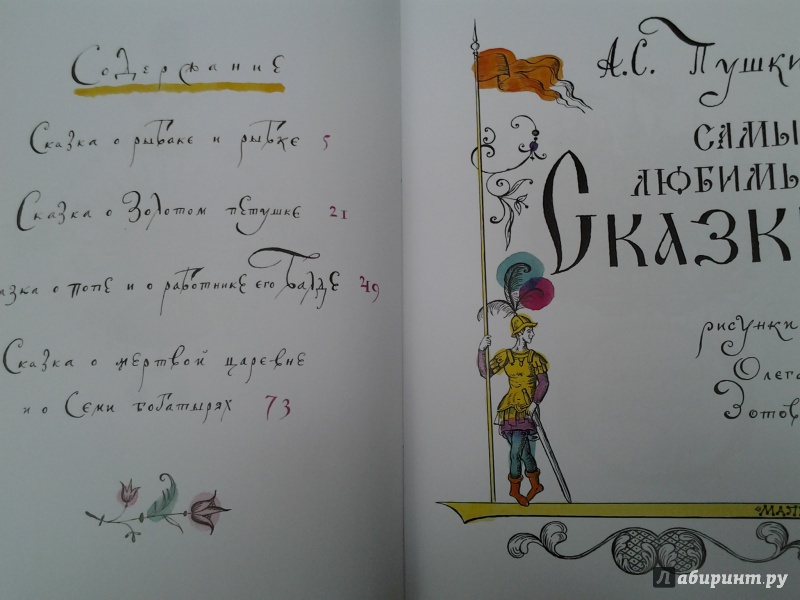 Содержание
Сказка о рыбаке и рыбке 5
Сказка о Золотом петушке 21
азка о попе и о работнике его Балде 49
Сказка о мертвой царевне
и о Семи богатырях 73
А.С. Пушки
САМЫ
ЛЮБИМЫ
СКАЗК
рисунки
Олега
Зотов
МАЛ
Лабиринт.ру